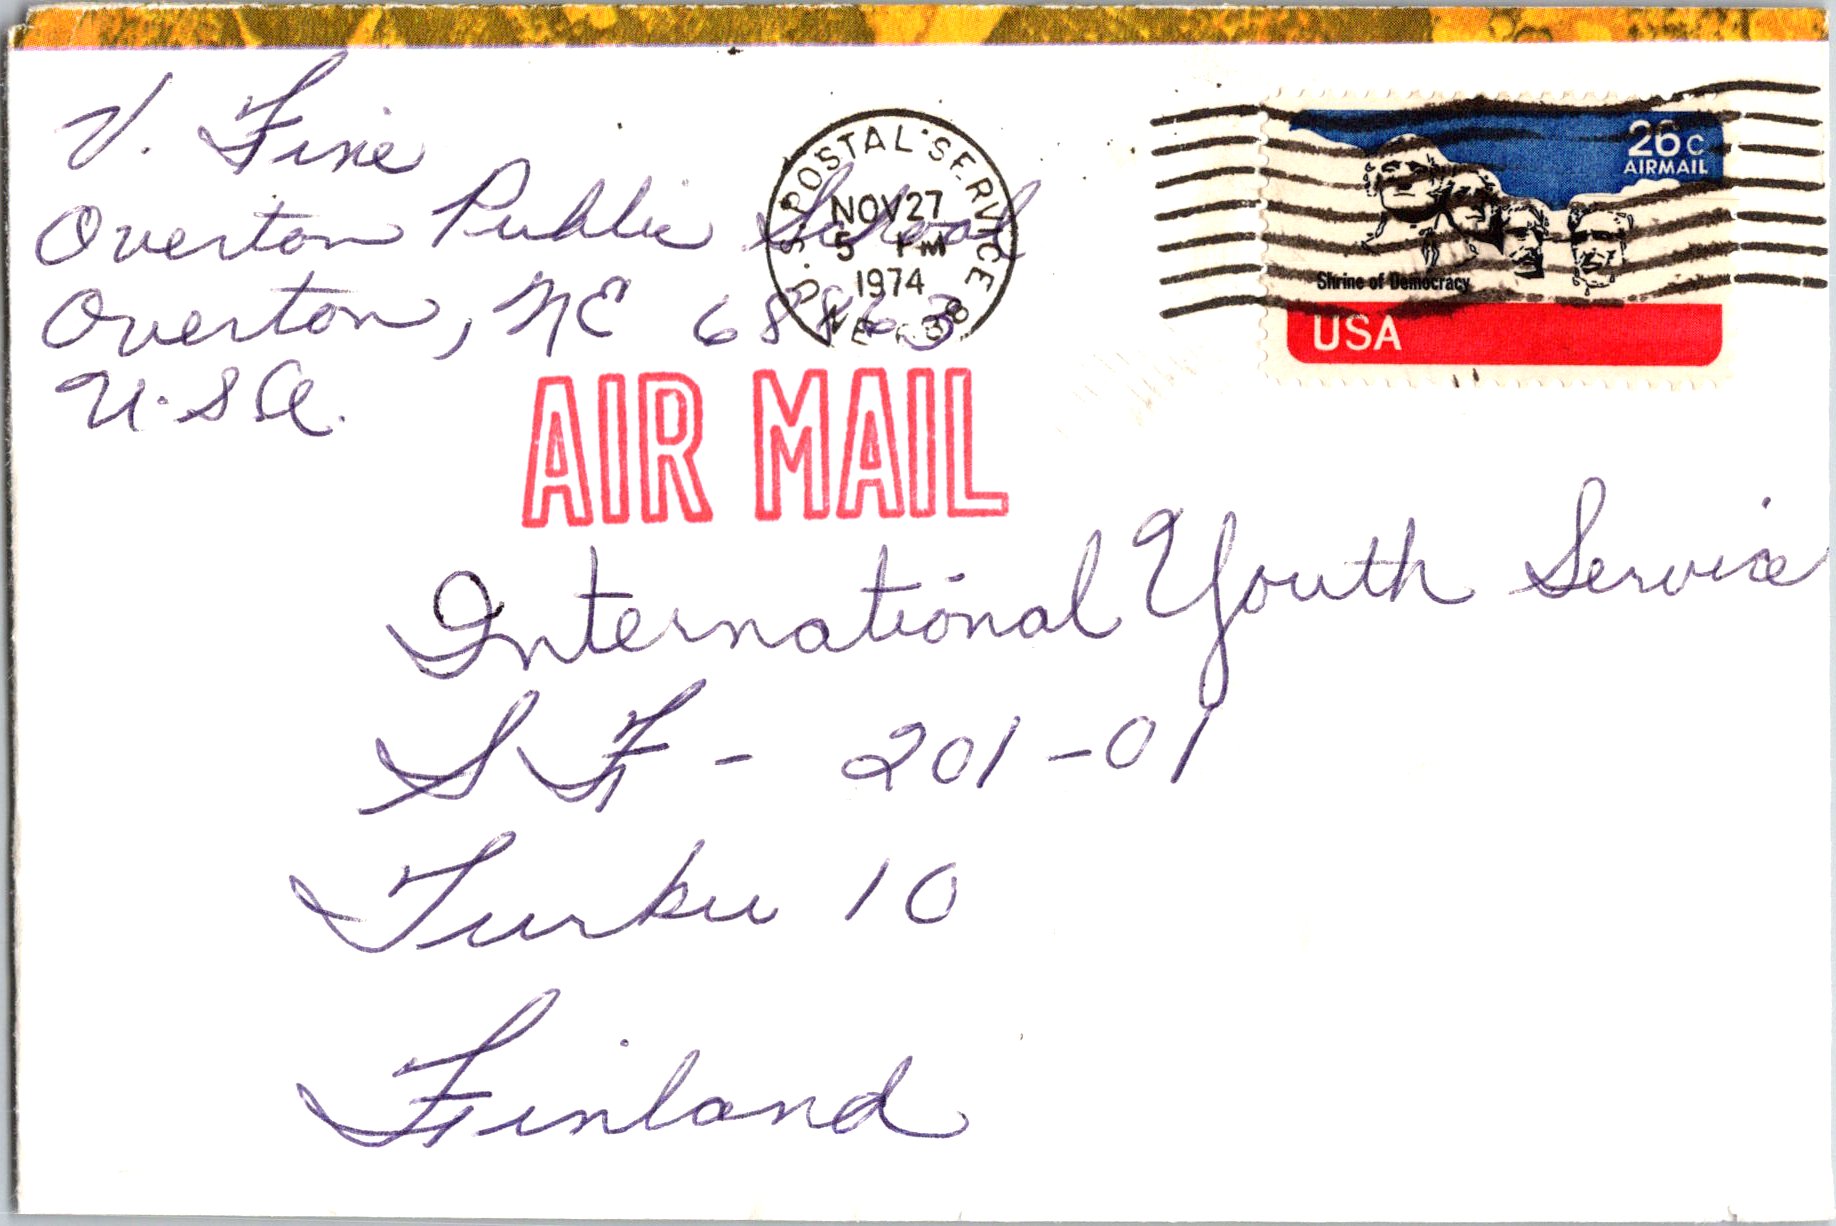 V. Fine
Overton Public School
Overton, NE 68863
U.S.A.
U.S. POSTAL SERVICE
NOV 27
5 PM
1974
NE 688
26c
AIRMAIL
Shrine of Democracy
USA
AIR MAIL
International Youth Service
SF - 201-01
Turku 10
Finland